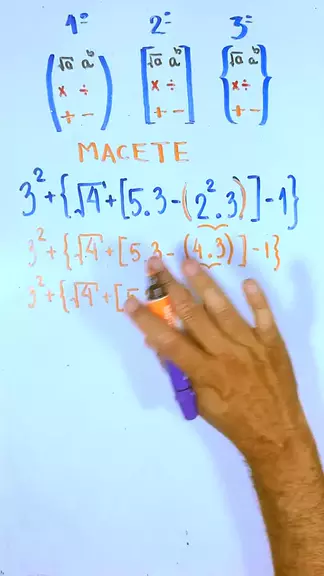 1º 2º 3º
(√a aᵇ [√a aᵇ {√a aᵇ
× ÷ × ÷ × ÷
+ −) + −] + −}
MACETE
3² + {√4 + [5.3 − (2².3)] − 1}
3² + {√4 + [5.3 − (4.3)] − 1}
3² + {√4 + [5